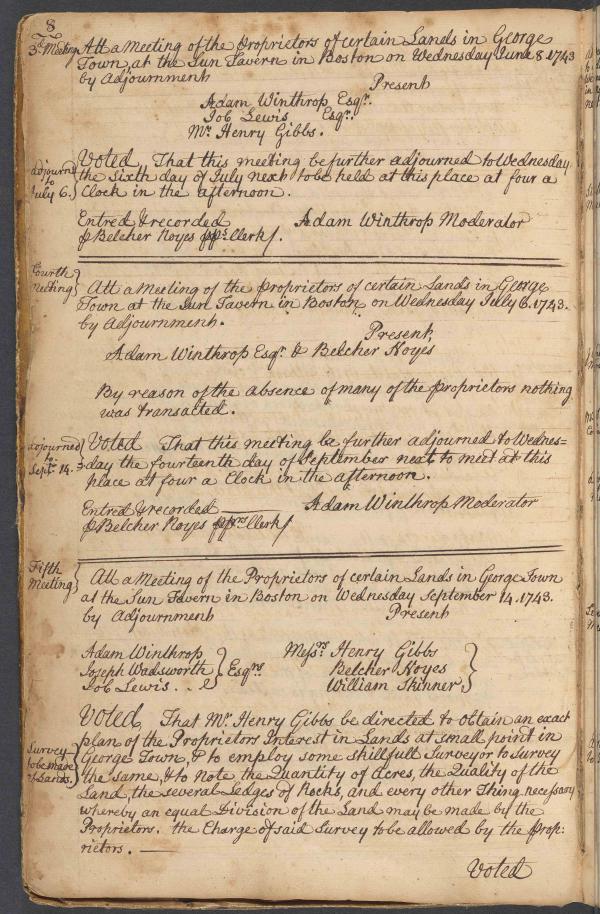 8
3d. Meeting
Att a Meeting of the Proprietors of certain Lands in George
Town, at the Sun Tavern in Boston on Wednesday June 8. 1743
by Adjournment
Present
Adam Winthrop Esqr.
Job Lewis Esqr.
Mr. Henry Gibbs.
adjourn'd
to
July 6.
Voted That this meeting be further adjourned to Wednesday
the Sixth day of July next to be held at this place at four a
Clock in the afternoon.
Entred & recorded
Adam Winthrop Moderator
p Belcher Noyes Clerk
Fourth
meeting
Att a Meeting of the Proprietors of certain Lands in George
Town at the Sun Tavern in Boston on Wednesday July 6. 1743.
by Adjournment.
Present,
Adam Winthrop Esqr. & Belcher Noyes
By reason of the absence of many of the Proprietors nothing
was transacted.
adjourned
to
Sept. 14.
Voted That this meeting be further adjourned to Wednes=
day the fourteenth day of September next to meet at this
place at four a Clock in the afternoon.
Entred & recorded
Adam Winthrop Moderator
p Belcher Noyes Clerk
Fifth
Meeting
Att a Meeting of the Proprietors of certain Lands in George Town
at the Sun Tavern in Boston on Wednesday September 14. 1743.
by Adjournment
Present
Adam Winthrop
Joseph Wadsworth
Job Lewis
Esqrs
Messrs Henry Gibbs
Belcher Noyes
William Skinner
Survey
to be made
of Lands
Voted, That Mr. Henry Gibbs be directed to obtain an exact
plan of the Proprietors Interest in Lands at small point in
George Town, & to employ some skillfull Surveyor to survey
the same, & to Note the Quantity of Acres, the Quality of the
Land, the several Ledges of Rocks, and every other Thing necessary
whereby an equal Division of the Land may be made by the
Proprietors. the Charge of said Survey to be allowed by the Prop:
rietors. —
Voted